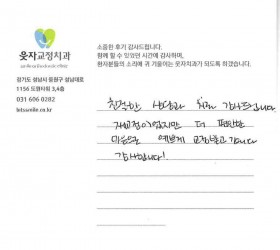 웃자교정치과
경기도 성남시 중원구 성남대로
1156 도원타워 3,4층
031 606 0282
letsusmile.co.kr
소중한 후기 감사드립니다.
함께 할 수 있었던 시간에 감사하며,
환자분들의 소리에 귀 기울이는 웃자치과가 되도록 하겠습니다.
친절한 상담과 치료 감사드립니다
재교정이었지만 더 편안한
마음으로 예쁘게 교정하고 갑니다
감사합니다!